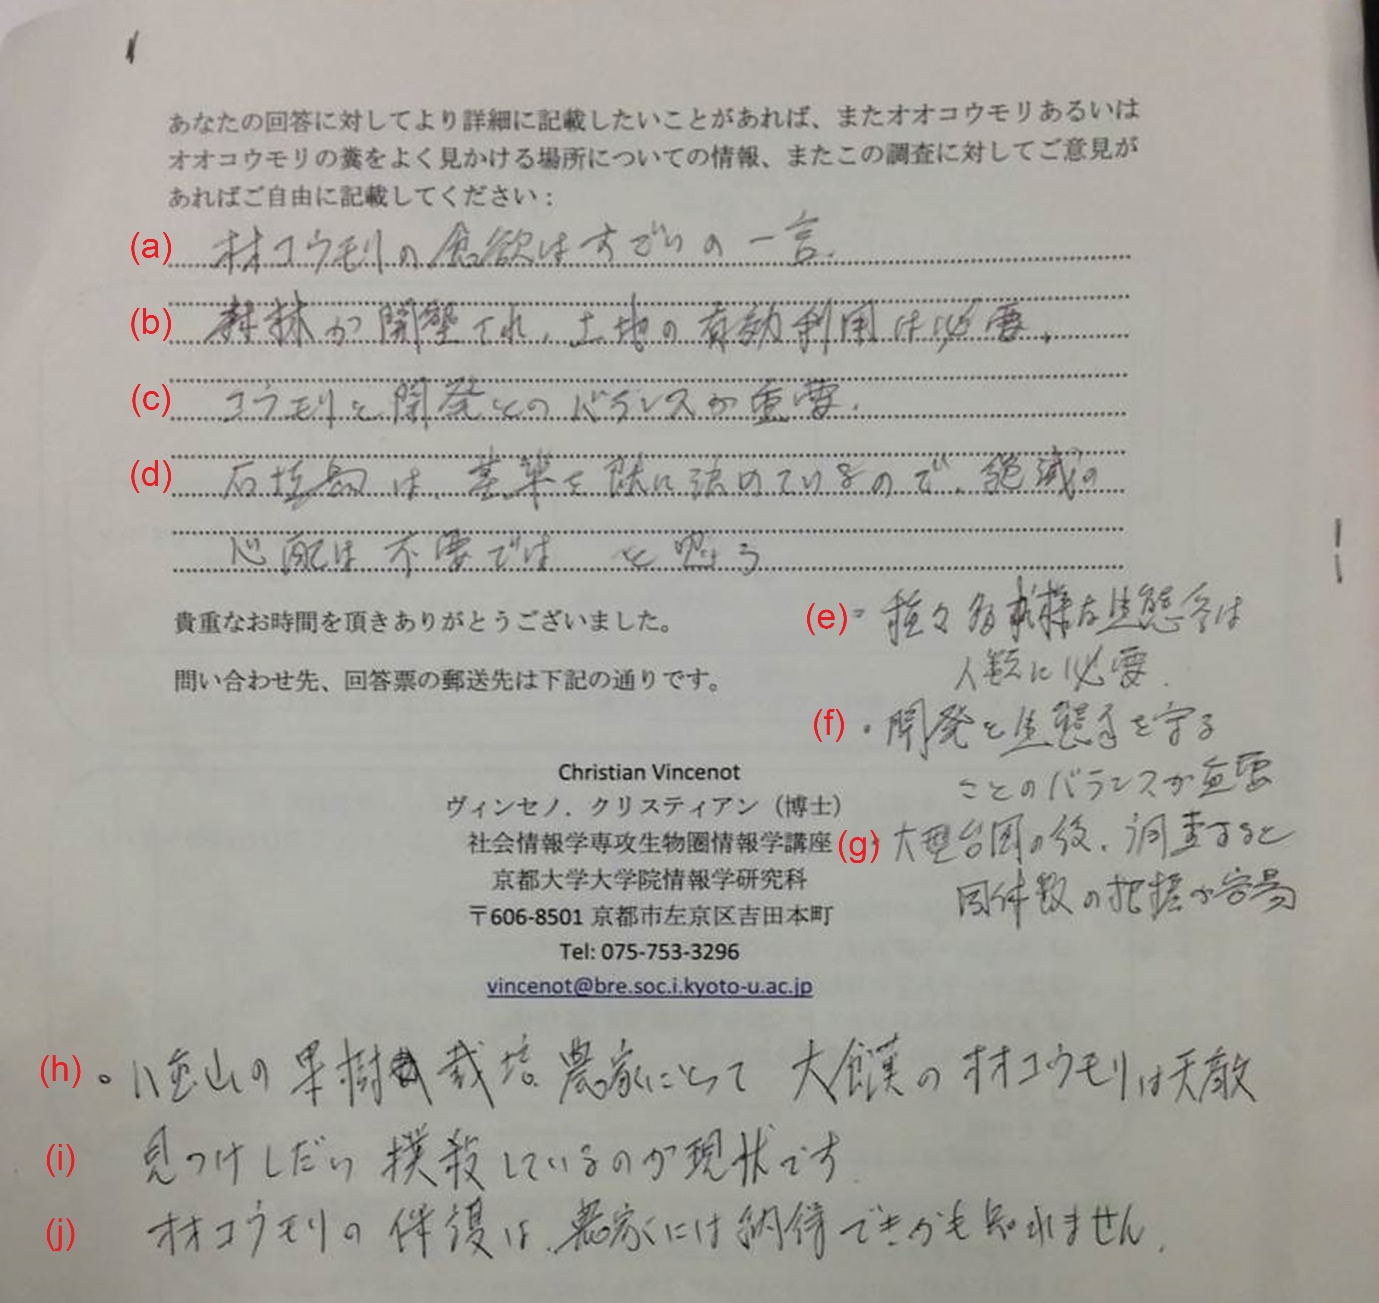 あなたの回答に対してより詳細に記載したいことがあれば、またオオコウモリあるいは
オオコウモリの糞をよく見かける場所についての情報、またこの調査に対してご意見が
あればご自由に記載してください：
(a) オオコウモリの食欲はすごいの一言.
(b) 森林が開墾され、土地の有効利用は必要.
(c) コウモリと開発とのバランスが重要.
(d) 石垣島は、基準を既に決めているので、絶滅の
心配は不要では と思う
貴重なお時間を頂きありがとうございました。
(e) 種々多様な生態系は
人類に必要.
問い合わせ先、回答票の郵送先は下記の通りです。
(f) ・開発と生態系を守る
ことのバランスが重要
Christian Vincenot
ヴィンセノ．クリスティアン（博士）
社会情報学専攻生物圏情報学講座
(g) 大型台風の後、調査すると
京都大学大学院情報学研究科
固体数の把握が容易
〒606-8501 京都市左京区吉田本町
Tel: 075-753-3296
vincenot@bre.soc.i.kyoto-u.ac.jp
(h) 。八重山の果樹栽培農家にとって 大食漢のオオコウモリは天敵
(i) 見つけしだい撲殺しているのが現状です
(j) オオコウモリの保護は、農家には納得できかも知れません.